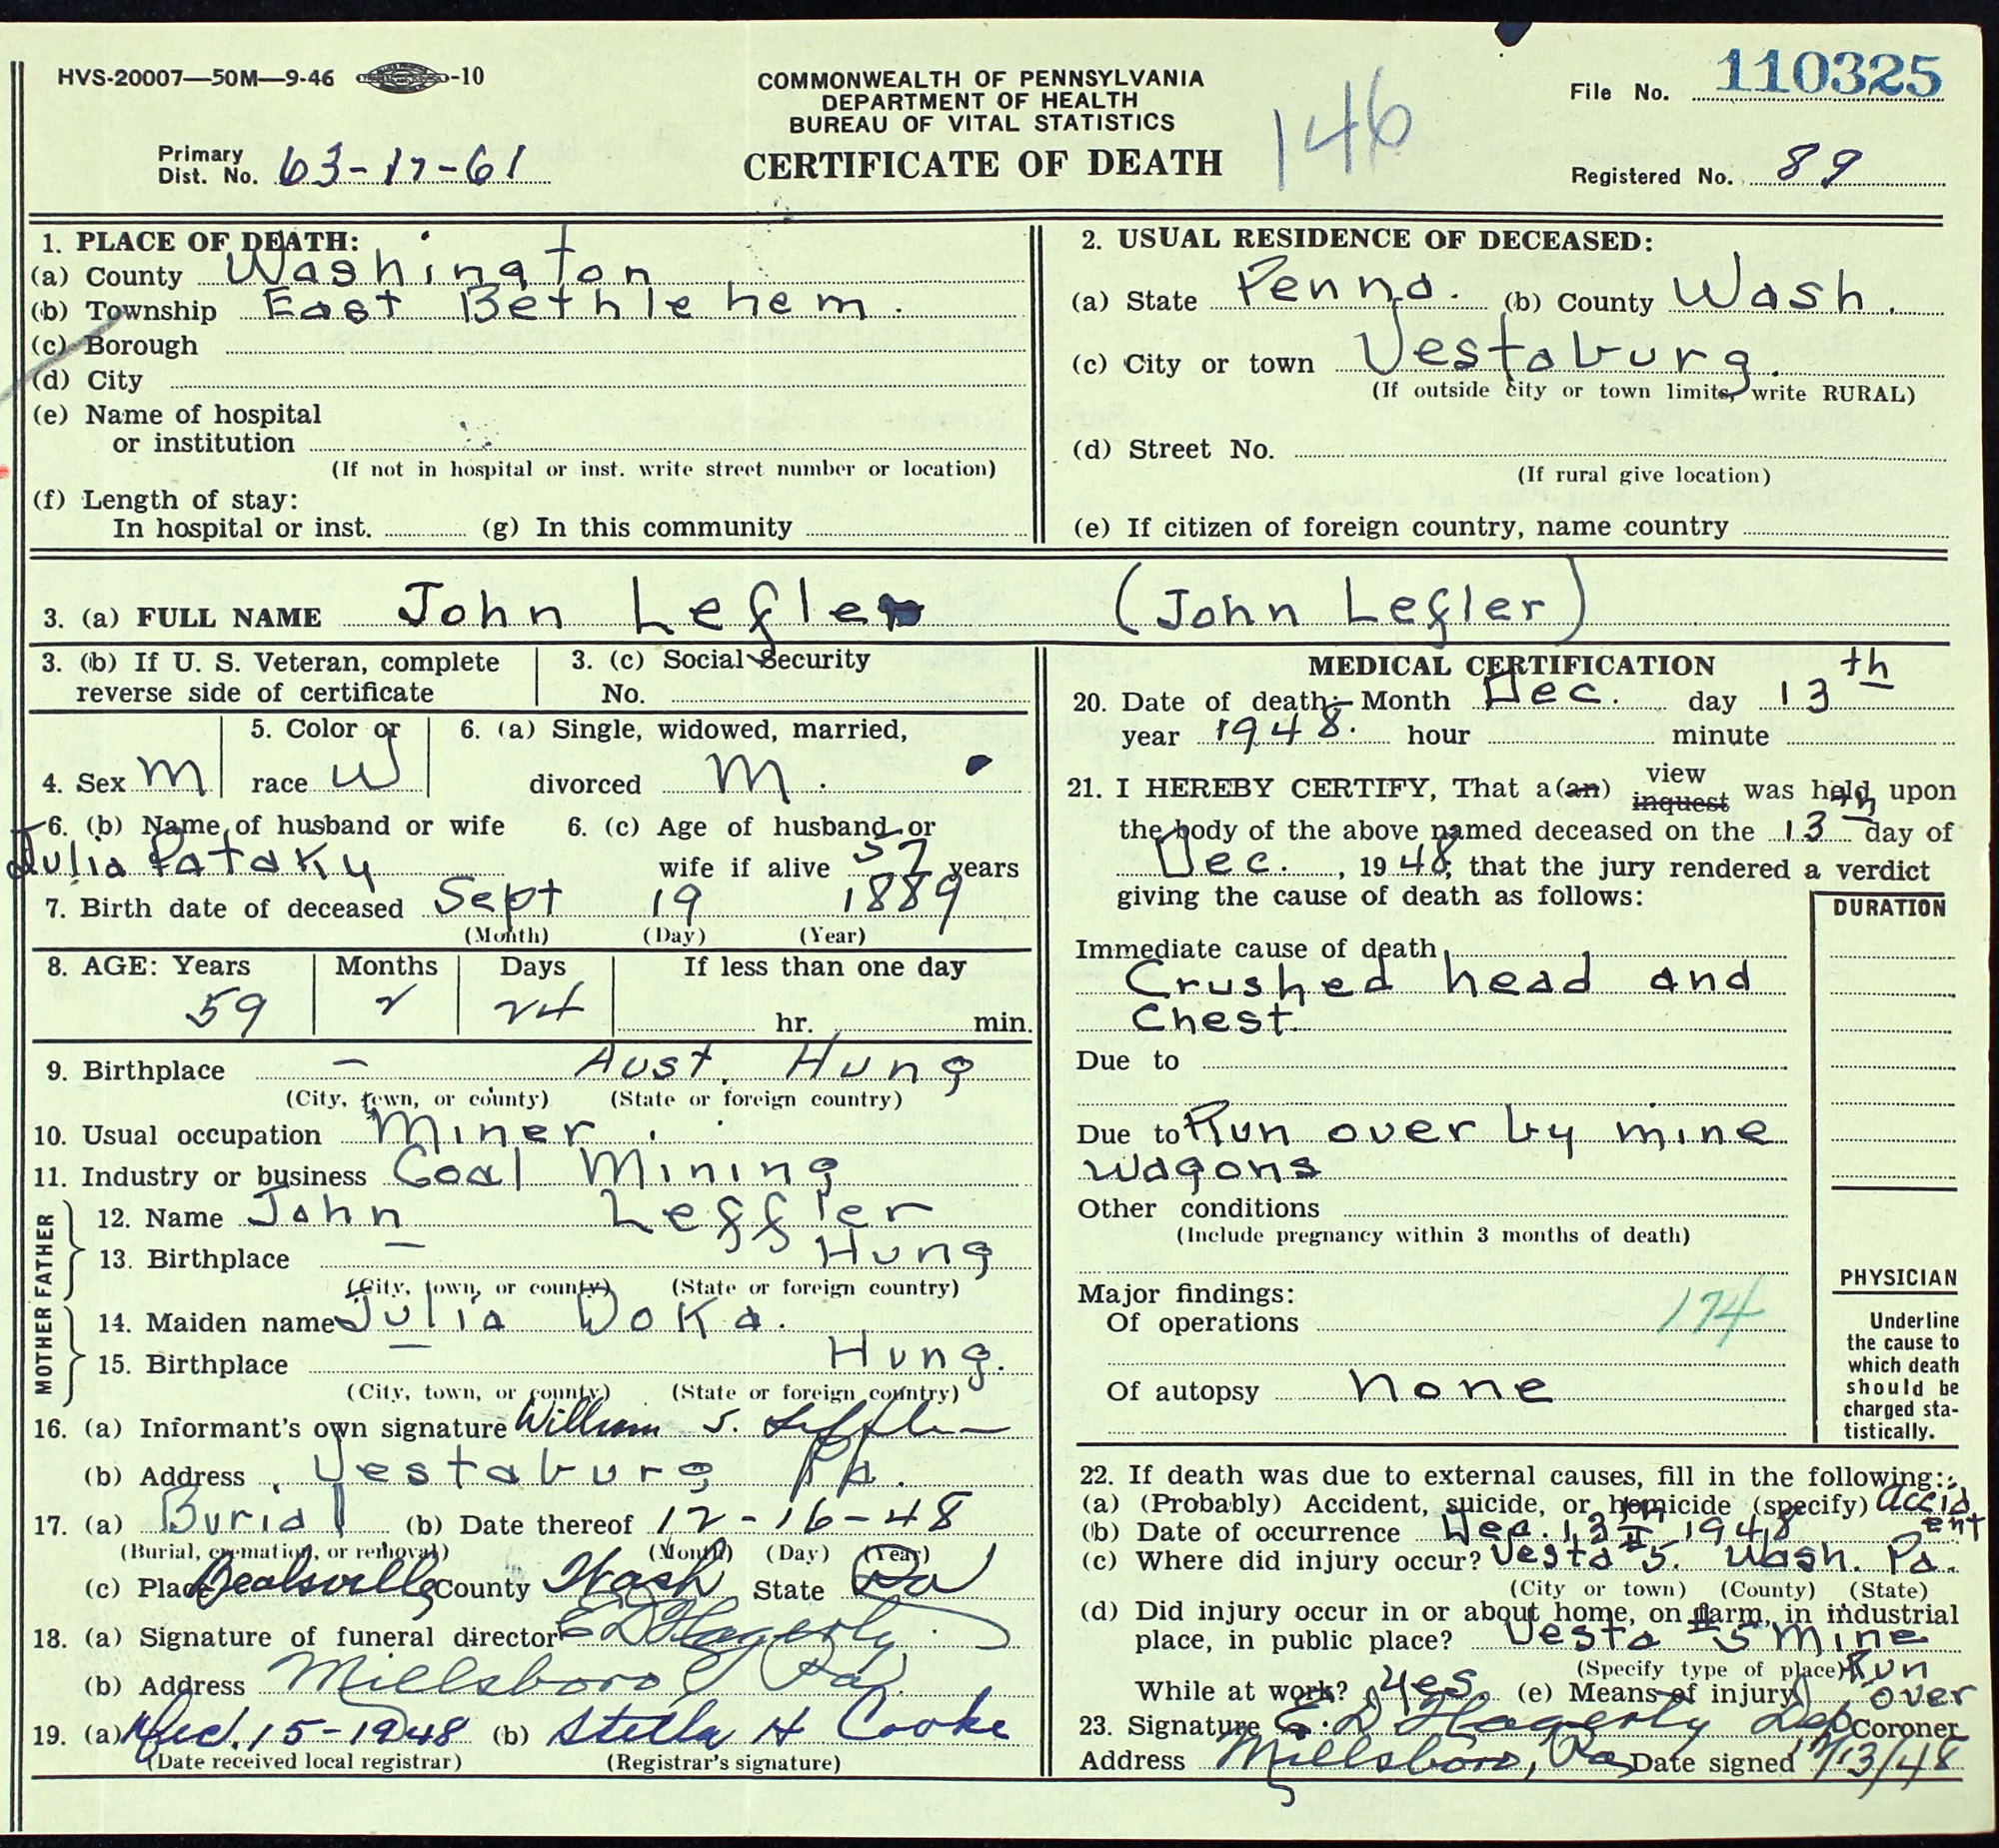 HVS-20007—50M—9-46 -10
COMMONWEALTH OF PENNSYLVANIA
DEPARTMENT OF HEALTH
BUREAU OF VITAL STATISTICS
CERTIFICATE OF DEATH
146
File No. 110325
Primary
Dist. No. 63-17-61
Registered No. 89
1. PLACE OF DEATH:
(a) County Washington
(b) Township East Bethlehem.
(c) Borough
(d) City
(e) Name of hospital
or institution
(If not in hospital or inst. write street number or location)
(f) Length of stay:
In hospital or inst. (g) In this community
2. USUAL RESIDENCE OF DECEASED:
(a) State Penna. (b) County Wash.
(c) City or town Vestaburg.
(If outside city or town limits, write RURAL)
(d) Street No.
(If rural give location)
(e) If citizen of foreign country, name country
3. (a) FULL NAME John Lefler (John Lefler)
3. (b) If U. S. Veteran, complete
reverse side of certificate
3. (c) Social Security
No.
4. Sex M
5. Color or
race W
6. (a) Single, widowed, married,
divorced M.
6. (b) Name of husband or wife
Julia Pataky
6. (c) Age of husband or
wife if alive 57 years
7. Birth date of deceased Sept 19 1889
(Month) (Day) (Year)
8. AGE: Years Months Days If less than one day
59 2 24 hr. min.
9. Birthplace — Aust. Hung
(City, town, or county) (State or foreign country)
10. Usual occupation Miner
11. Industry or business Coal Mining
FATHER
12. Name John Leffler
13. Birthplace — Hung
(City, town, or county) (State or foreign country)
MOTHER
14. Maiden name Julia Doka.
15. Birthplace — Hung.
(City, town, or county) (State or foreign country)
16. (a) Informant's own signature William J. Leffler
(b) Address Vestaburg Pa.
17. (a) Burial (b) Date thereof 12-16-48
(Burial, cremation, or removal) (Month) (Day) (Year)
(c) Place Bealsville County Wash State Pa
18. (a) Signature of funeral director E D Hagerty
(b) Address Millsboro, Pa.
19. (a) Dec. 15-1948 (b) Stella H Cooke
(Date received local registrar) (Registrar's signature)
MEDICAL CERTIFICATION
20. Date of death: Month Dec. day 13th
year 1948. hour minute
21. I HEREBY CERTIFY, That a(an) view inquest was held upon
the body of the above named deceased on the 13th day of
Dec., 1948; that the jury rendered a verdict
giving the cause of death as follows:
DURATION
Immediate cause of death
Crushed head and
Chest
Due to
Due to Run over by mine
wagons
Other conditions
(Include pregnancy within 3 months of death)
Major findings:
Of operations 174
Of autopsy none
PHYSICIAN
Underline
the cause to
which death
should be
charged sta-
tistically.
22. If death was due to external causes, fill in the following:
(a) (Probably) Accident, suicide, or homicide (specify) accident
(b) Date of occurrence Dec. 13th 1948
(c) Where did injury occur? Vesta #5. Wash. Pa.
(City or town) (County) (State)
(d) Did injury occur in or about home, on farm, in industrial
place, in public place? Vesta #5 Mine
(Specify type of place)
While at work? yes. (e) Means of injury Run over
23. Signature E. D Hagerty Dep Coroner
Address Millsboro, Pa Date signed 12/13/48